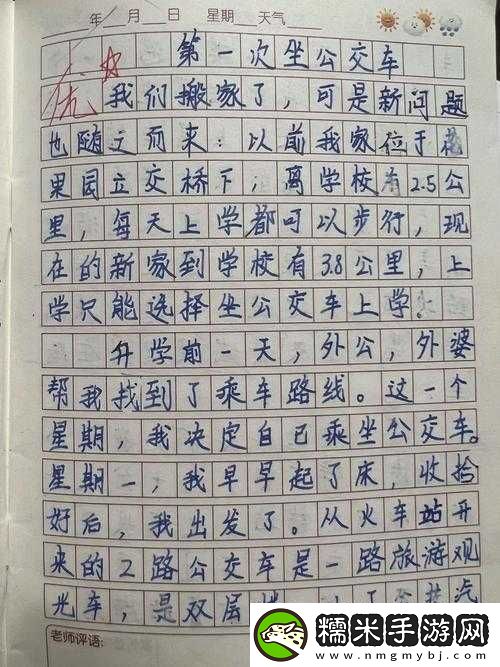 年 月 日 星期 天气
优
第一次坐公交车
我们搬家了，可是新问题
也随之而来：以前我家位于花
果园立交桥下，离学校有2.5公
里，每天上学都可以步行，现
在的新家到学校有3.8公里，上
学只能选择坐公交车上学。
升学前一天，外公，外婆
帮我找到了乘车路线。这一个
星期，我决定自己乘坐公交车。
星期一，我早早起了床，收拾
好后，我出发了。从火车站开
来的2路公交车是一路旅游观
光车，是双层
老师评语：
糯米手游网
www.nmgmybj.com